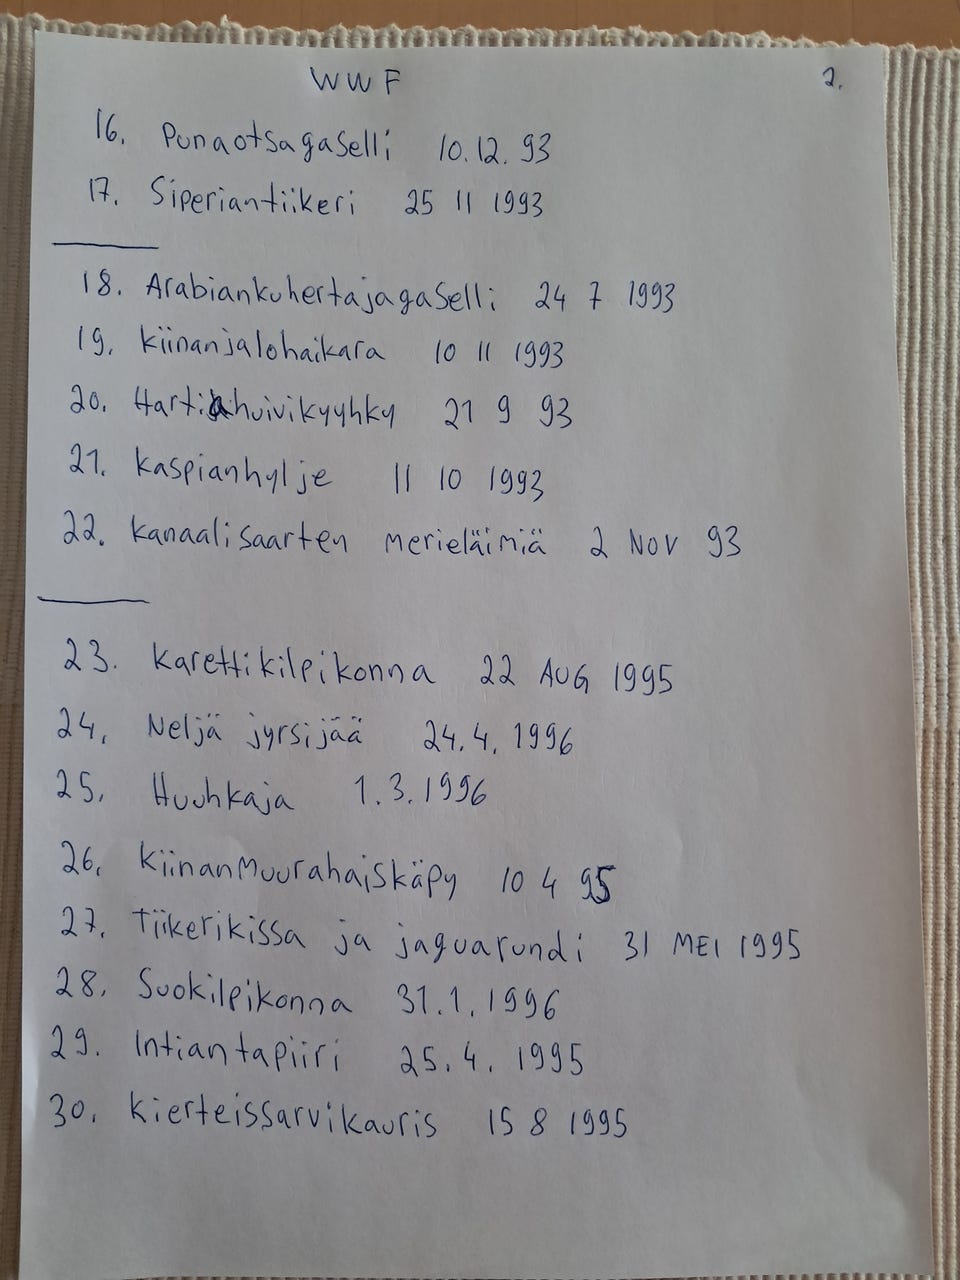 WWF 2.
16. Punaotsagaselli 10.12.93
17. Siperiantiikeri 25 11 1993
18. Arabiankuhertajagaselli 24 7 1993
19. Kiinanjalohaikara 10 11 1993
20. Hartiahuivikyyhky 21 9 93
21. Kaspianhylje 11 10 1993
22. Kanaalisaarten merieläimiä 2 NOV 93
23. Karettikilpikonna 22 AUG 1995
24. Neljä jyrsijää 24.4.1996
25. Huuhkaja 1.3.1996
26. Kiinanmuurahaiskäpy 10 4 95
27. Tiikerikissa ja jaguarundi 31 MEI 1995
28. Suokilpikonna 31.1.1996
29. Intiantapiiri 25.4.1995
30. Kierteissarvikauris 15 8 1995